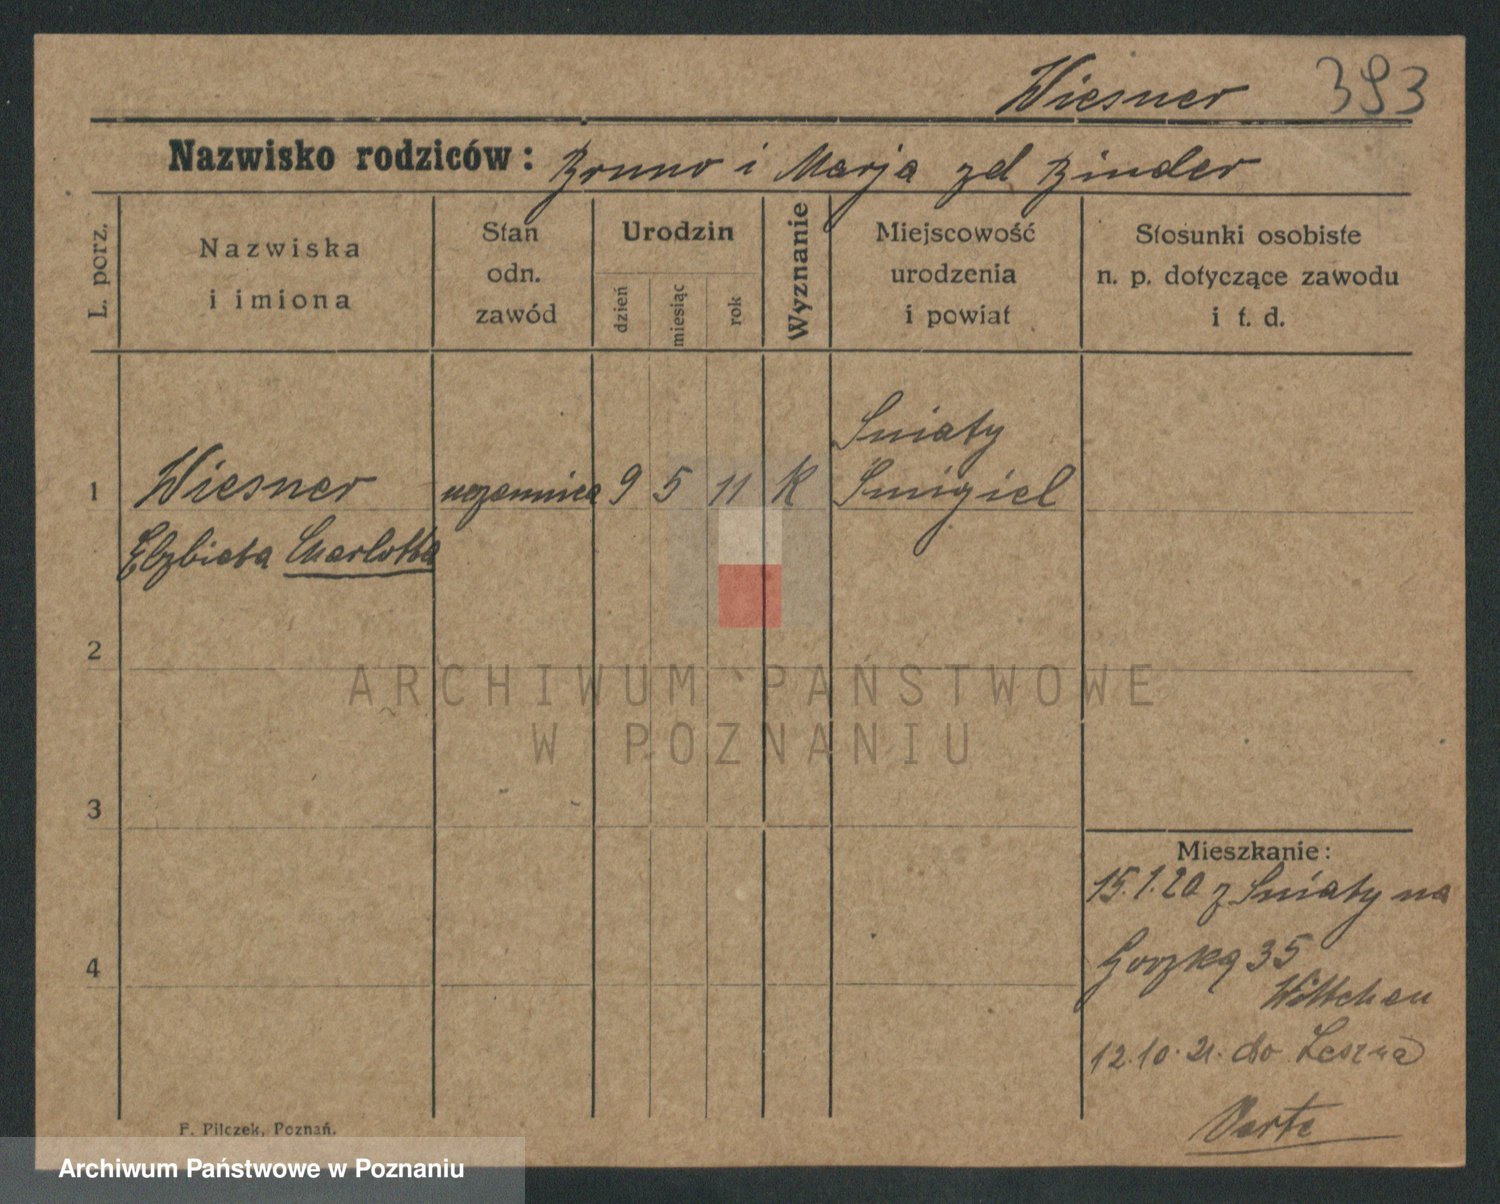 Wiesner 393
Nazwisko rodziców: Bruno i Marja zd Binder
L. porz.
Nazwiska
i imiona
Stan
odn.
zawód
Urodzin
dzień
miesiąc
rok
Wyznanie
Miejscowość
urodzenia
i powiat
Stosunki osobiste
n. p. dotyczące zawodu
i t. d.
Śniaty
1 Wiesner uczennica 9 5 11 K Śmigiel
Elzbieta Charlotta
2
ARCHIWUM PAŃSTWOWE
W POZNANIU
3
Mieszkanie:
15.1.20 z Śniaty na
4
35
Wittchen
12.10.21. do Leszna
F. Pilczek, Poznań.
Archiwum Państwowe w Poznaniu